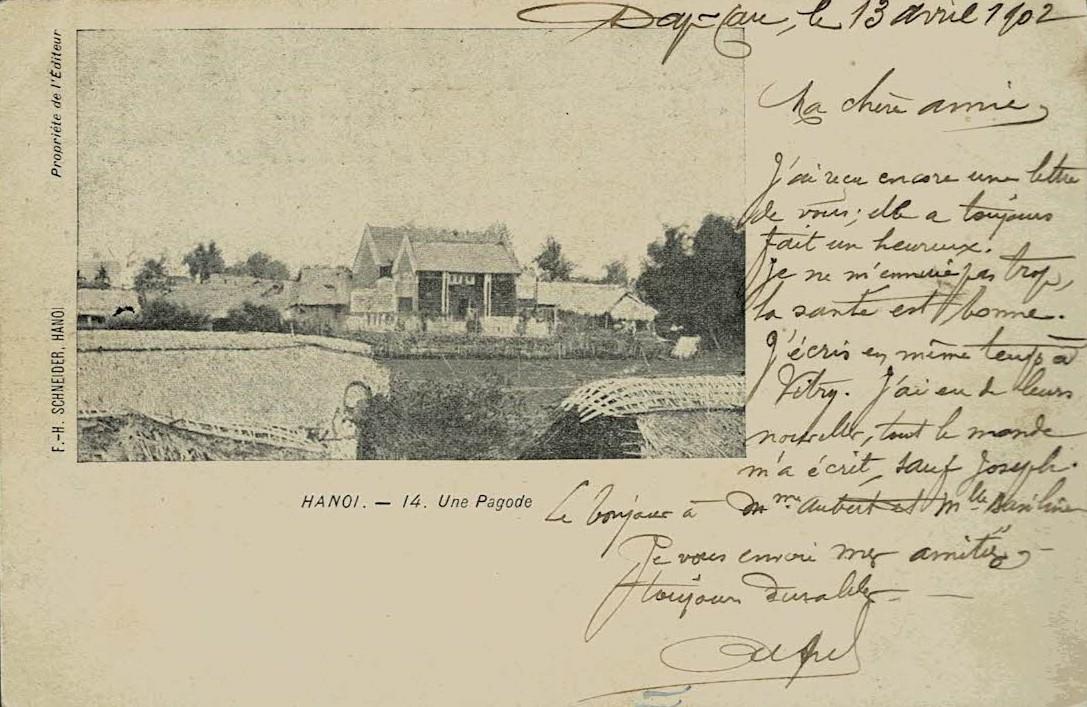 Dap-Cau, le 13 avril 1902
Ma chère amie,
J'ai reçu encore une lettre
de vous; elle a toujours
fait un heureux.
Je ne m'ennuie pas trop,
la santé est bonne.
J'écris en même temps à
Vitry. J'ai eu de leurs
nouvelles, tout le monde
m'a écrit, sauf Joseph.
Le bonjour à Mme Aubert et Mlle
Je vous envoie mes amitiés
toujours durables
Propriéte de l'Éditeur
F.-H. SCHNEIDER, HANOI
HANOI. — 14. Une Pagode